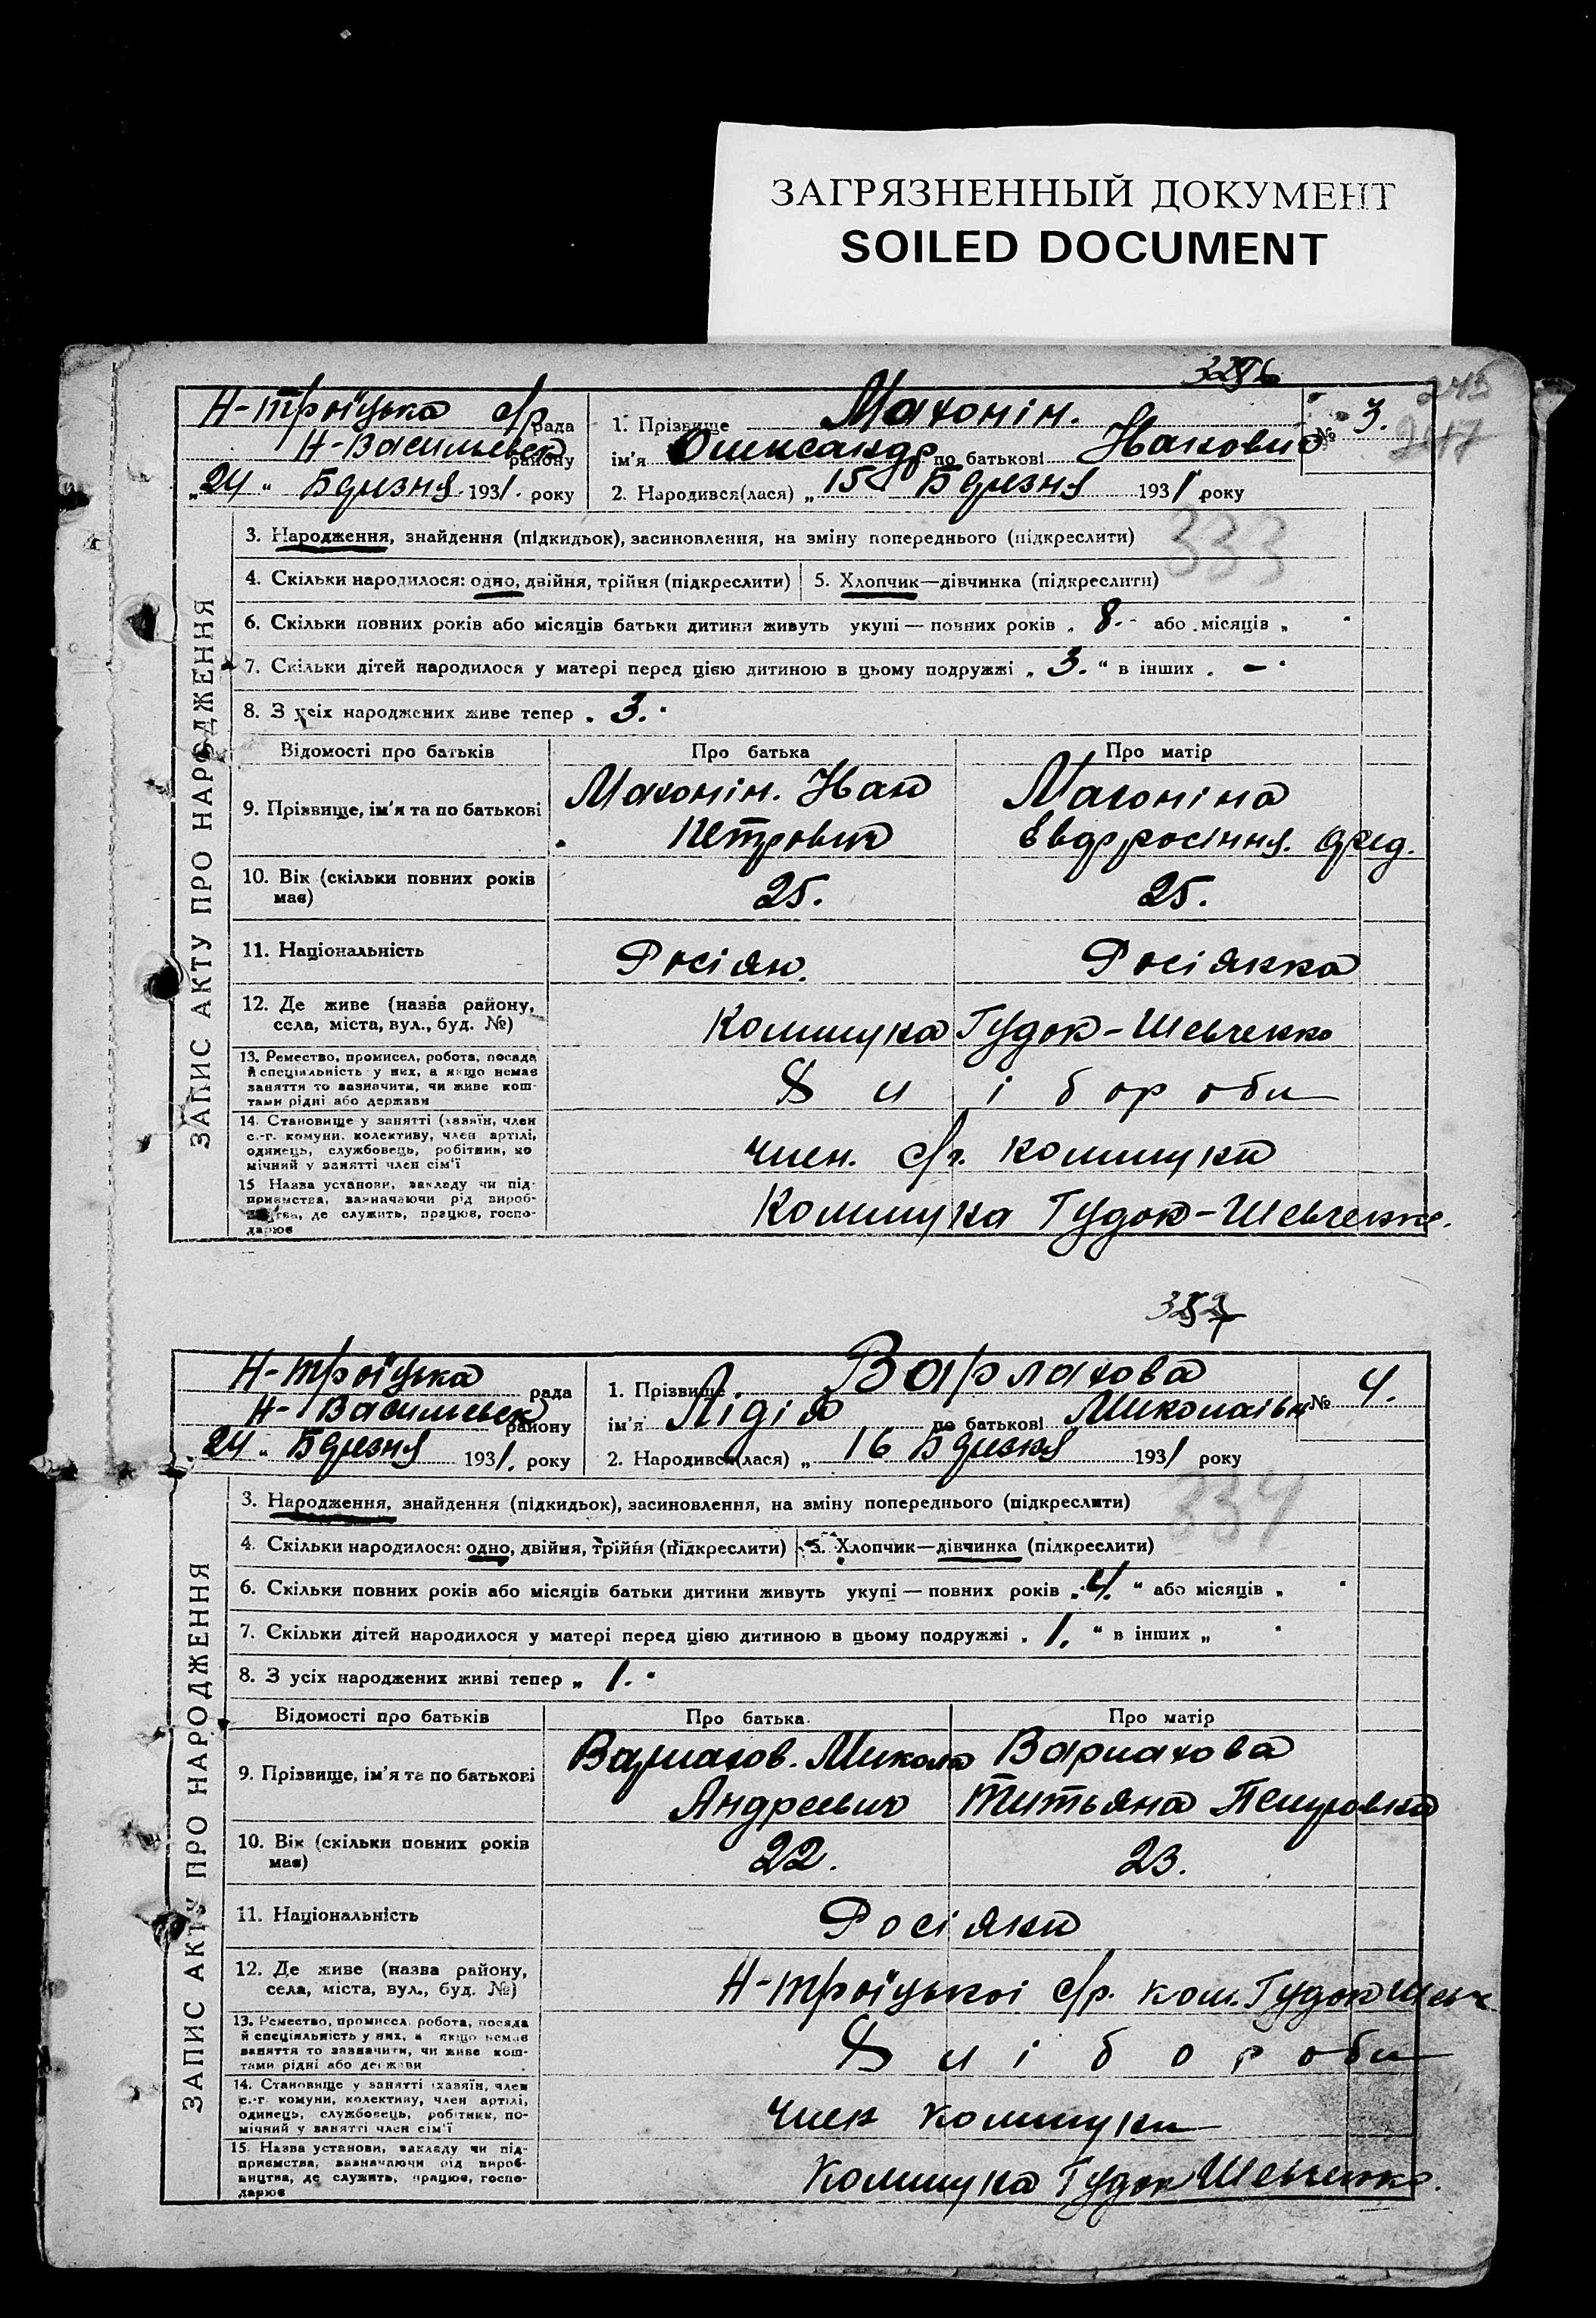 ЗАГРЯЗНЕННЫЙ ДОКУМЕНТ
SOILED DOCUMENT
Н-Троїцька с/р. рада
Н-Васильевск району
„24“ Березня 1931. року
1. Прізвище Махонін.
ім'я Олександр по батькові Иванович
№ 3.
2. Народився(лася) „15 Березня 1931 року
333
ЗАПИС АКТУ ПРО НАРОДЖЕННЯ
3. Народження, знайдення (підкидьок), засиновлення, на зміну попереднього (підкреслити)
4. Скільки народилося: одно, двійня, трійня (підкреслити) 5. Хлопчик—дівчинка (підкреслити)
6. Скільки повних років або місяців батьки дитини живуть укупі — повних років „ 8. “ або місяців „
7. Скільки дітей народилося у матері перед цією дитиною в цьому подружжі „ 3. “ в інших „ —
8. З усіх народжених живе тепер „ 3. “
Відомості про батьків Про батька Про матір
9. Прізвище, ім'я та по батькові Махонін. Иван Петрович Махоніна Евдросіння. Фед.
10. Вік (скільки повних років має) 25. 25.
11. Національність Росіян. Росіянка
12. Де живе (назва району, села, міста, вул., буд. №) Коммуна Гудок-Шевченко
13. Ремество, промисел, робота, посада й спеціяльність у них, а якщо немає заняття то зазначити, чи живе коштами рідні або держави Хлібороби
14. Становище у занятті (хазяїн, член с.-г. комуни, колективу, член артілі, одинець, службовець, робітник, помічний у занятті член сім'ї член. с/г. коммуни
15 Назва установи, закладу чи підприємства, зазначаючи рід виробництва, де служить, працює, господарює Коммуна Гудок-Шевченко.
Н-Троїцька рада
Н-Васильевск району
24 „ Березня 1931. року
1. Прізвище Варлахова
ім'я Лідія по батькові Миколаївн
№ 4.
2. Народився(лася) „ 16 Березня 1931 року
334
ЗАПИС АКТУ ПРО НАРОДЖЕННЯ
3. Народження, знайдення (підкидьок), засиновлення, на зміну попереднього (підкреслити)
4. Скільки народилося: одно, двійня, трійня (підкреслити) 5. Хлопчик—дівчинка (підкреслити)
6. Скільки повних років або місяців батьки дитини живуть укупі — повних років „ 4. “ або місяців „
7. Скільки дітей народилося у матері перед цією дитиною в цьому подружжі „ 1. “ в інших „
8. З усіх народжених живі тепер „ 1. “
Відомості про батьків Про батька. Про матір
9. Прізвище, ім'я та по батькові Варлахов. Микола Андреевич Варлахова Титьяна Петровна
10. Вік (скільки повних років має) 22. 23.
11. Національність Росіяни
12. Де живе (назва району, села, міста, вул., буд. №) Н-Троїцької с/р. ком. Гудок Шевч
13. Ремество, промисел, робота, посада й спеціяльність у них, а якщо немає заняття то зазначити, чи живе коштами рідні або держави Хлібороби
14. Становище у занятті (хазяїн, член с.-г. комуни, колективу, член артілі, одинець, службовець, робітник, помічний у занятті член сім'ї член коммуни
15. Назва установи, закладу чи підприємства, зазначаючи рід виробництва, де служить, працює, господарює Коммуна Гудок Шевченко.